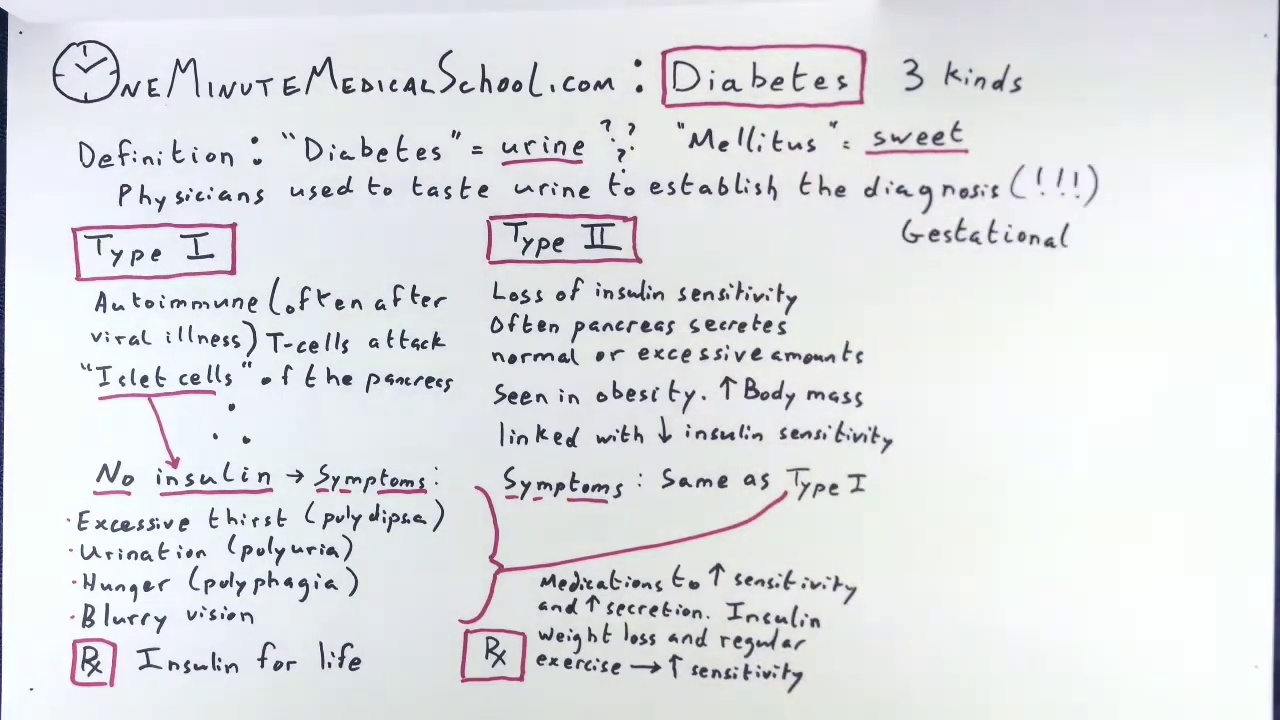 OneMinuteMedicalSchool.com: Diabetes 3 kinds
Definition: "Diabetes" = urine ??? "Mellitus" = sweet
Physicians used to taste urine to establish the diagnosis (!!!)
Gestational
Type I
Autoimmune (often after
viral illness) T-cells attack
"Islet cells" of the pancreas
No insulin → Symptoms:
· Excessive thirst (polydipsa)
· Urination (polyuria)
· Hunger (polyphagia)
· Blurry vision
Rx Insulin for life
Type II
Loss of insulin sensitivity
Often pancreas secretes
normal or excessive amounts
Seen in obesity. ↑ Body mass
linked with ↓ insulin sensitivity
Symptoms: Same as Type I
Rx
Medications to ↑ sensitivity
and ↑ secretion. Insulin
weight loss and regular
exercise → ↑ sensitivity